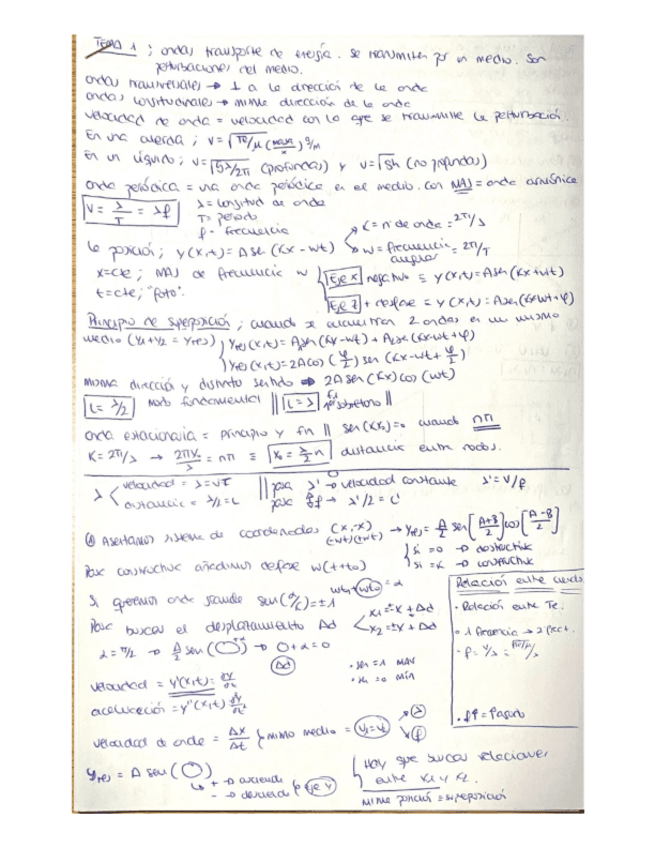 TEMA 1 ; ondas transporte de energía. Se transmiten por un medio. Son
perturbaciones del medio.
ondas transversales → ⊥ a la dirección de la onda
ondas longitudinales → misma dirección de la onda
velocidad de onda = velocidad con la que se transmite la perturbación.
En una cuerda ; v=√Te/μ (masa/x)
En un líquido ; v=√gλ/2π (profundas) y v=√gh (no profundas)
onda periódica = una onda periódica en el medio. con MAS = onda armónica
V = λ/T = λf
λ = longitud de onda
T = periodo
f = frecuencia
la posición ; y(x,t) = A sen (Kx - wt)
K = nº de onda = 2π/λ
w = frecuencia angular = 2π/T
x=cte ; MAS de frecuencia w
t=cte ; "foto".
Eje x negativo = y(x,t) = A sen (Kx+wt)
Eje t + desfase = y(x,t) = A sen (Kx-wt+φ)
Principio de superposición ; cuando se encuentran 2 ondas en un mismo
medio (y1+y2 = yres)
yres(x,t) = A sen (Kx-wt) + A sen (Kx-wt+φ)
yres(x,t) = 2A cos (φ/2) sen (Kx-wt+φ/2)
misma dirección y distinto sentido → 2A sen (Kx) cos (wt)
L = λ/2 modo fundamental || L = λ
onda estacionaria = principio y fin || sen(Kx0)=0 cuando nπ
K = 2π/λ → 2πx0/λ = nπ = x0 = λ/2 n distancia entre nodos.
λ
velocidad = λ = vT
distancia = λ/2 = L
para λ' → velocidad constante λ' = v/f
para ff → λ'/2 = L'
sistema de coordenadas (x,-x) (-wt)(+wt) → yres = A/2 sen[A+B/2] cos[A-B/2]
si =0 → destructiva
→ constructiva
Para constructiva añadimos desfase w(t+t0)
Si queremos onda grande sen(α/2)=±1
Para buscar el desplazamiento Δd
x1 = ±x + Δd
x2 = ±x + Δd
α = π/2 → A/2 sen( ) → 0+α=0
Δd
· sen = 1 MAX
· sen = 0 MIN
velocidad = y'(x,t) = dy/dt
aceleración = y''(x,t)
velocidad de onda = Δx/Δt } mismo medio = v1=v2
λ
f
yres = A sen ( )
+ → asciende
- → desciende
eje y
Relación entre cuerdas
· Relación entre Te.
Hay que buscar relaciones
entre x1 y x2.
misma posición = superposición